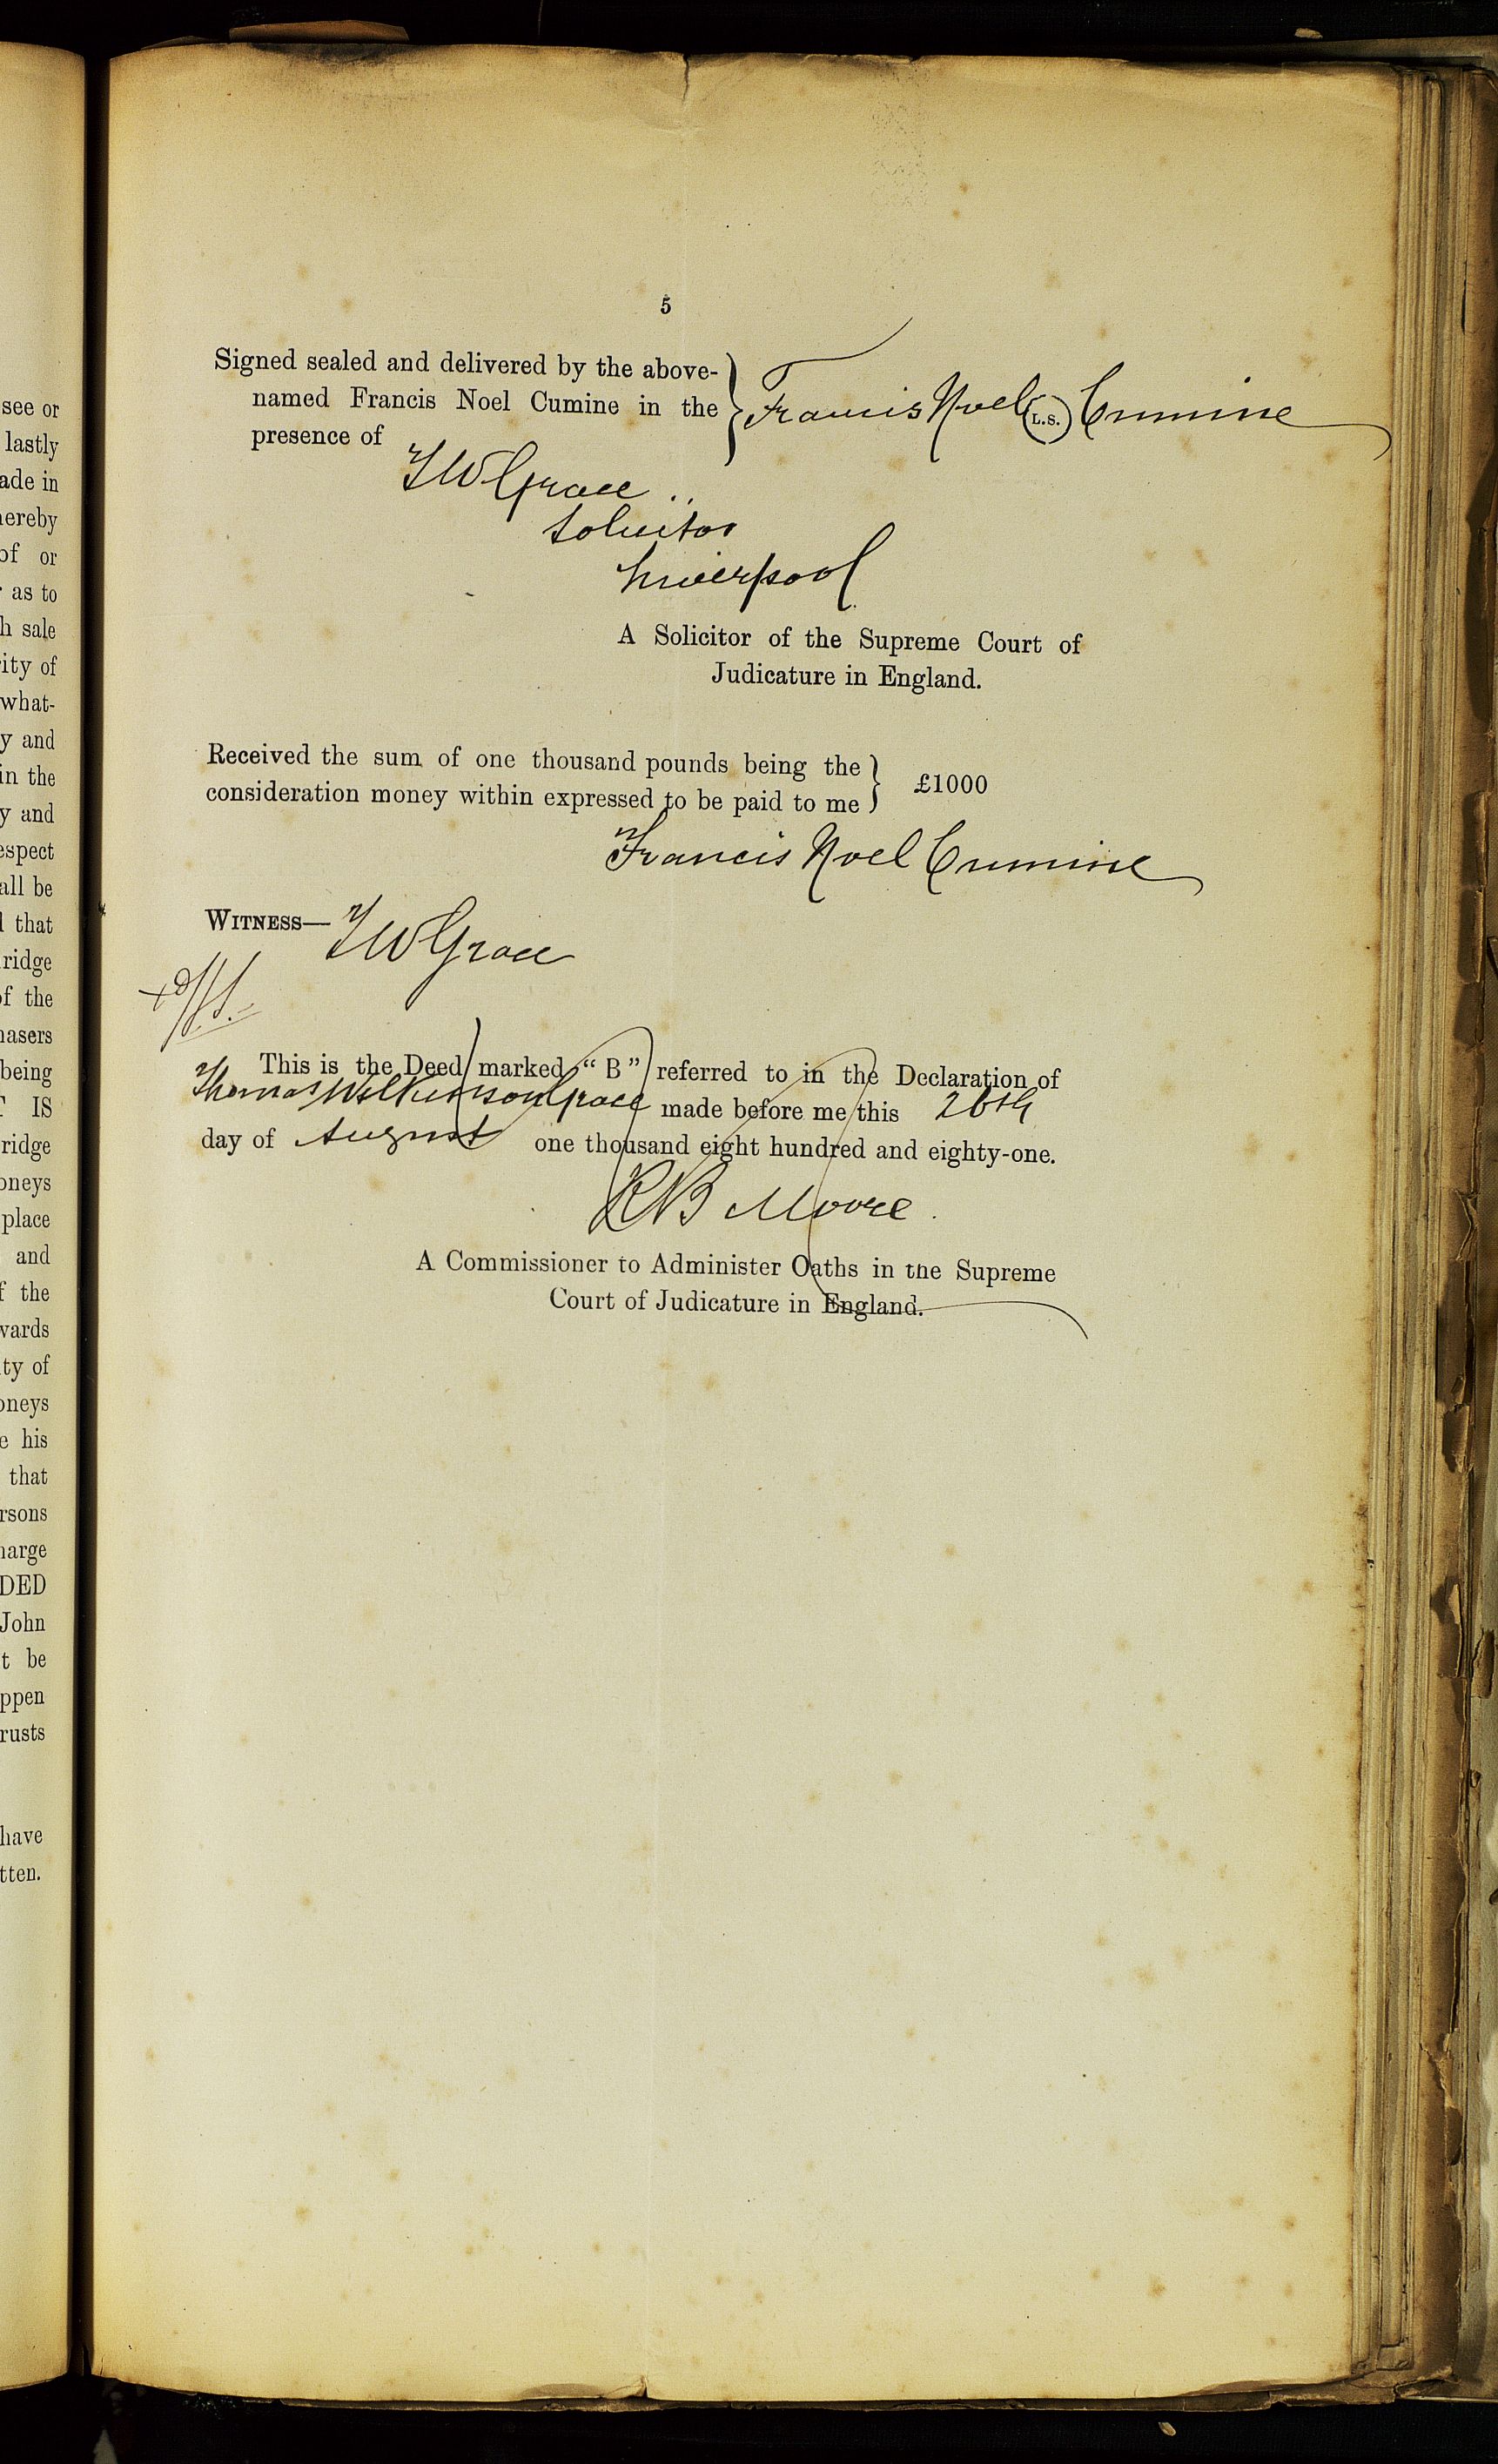 see or
lastly
ade in
hereby
of or
as to
h sale
ity of
what-
y and
in the
y and
espect
all be
that
ridge
of the
hasers
being
IS
ridge
oneys
place
and
f the
wards
ty of
oneys
e his
that
rsons
harge
DED
John
t be
ppen
rusts
have
tten.
5
Signed sealed and delivered by the above-
named Francis Noel Cumine in the
presence of
Francis Noel (L.S.) Cumine
T W Grace
Solicitor
Liverpool
A Solicitor of the Supreme Court of
Judicature in England.
Received the sum of one thousand pounds being the
consideration money within expressed to be paid to me
£1000
Francis Noel Cumine
WITNESS— T W Grace
This is the Deed marked "B" referred to in the Declaration of
Thomas Wilkinson Grace made before me this 26th
day of August one thousand eight hundred and eighty-one.
R B Moore
A Commissioner to Administer Oaths in the Supreme
Court of Judicature in England.